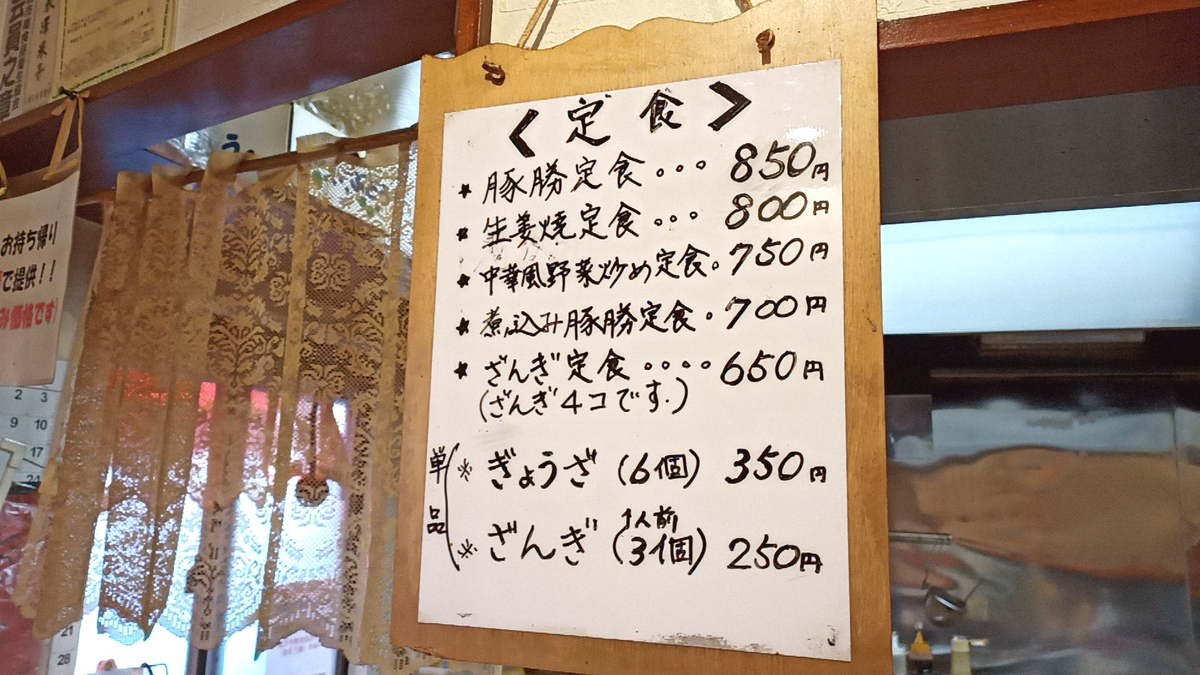 <定食>
★豚勝定食... 850円
★生姜焼定食... 800円
★中華風野菜炒め定食. 750円
★煮込み豚勝定食. 700円
★ざんぎ定食.... 650円
(ざんぎ4コです.)
単品
※ぎょうざ (6個) 350円
1人前
※ざんぎ (3個) 250円
お持ち帰り
で提供!!
み価格です
2 3
9 10
17
24
21
28